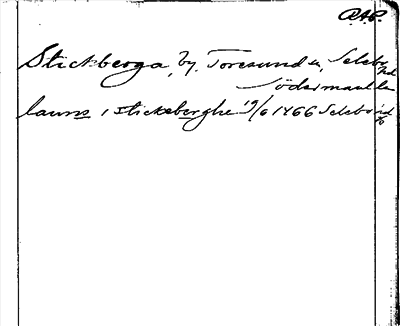 RAP.
Stickberga, by, Toresund sn, Selebo hd
Södermanlan
lauris i stickeberghe 19/6 1466 Selebo